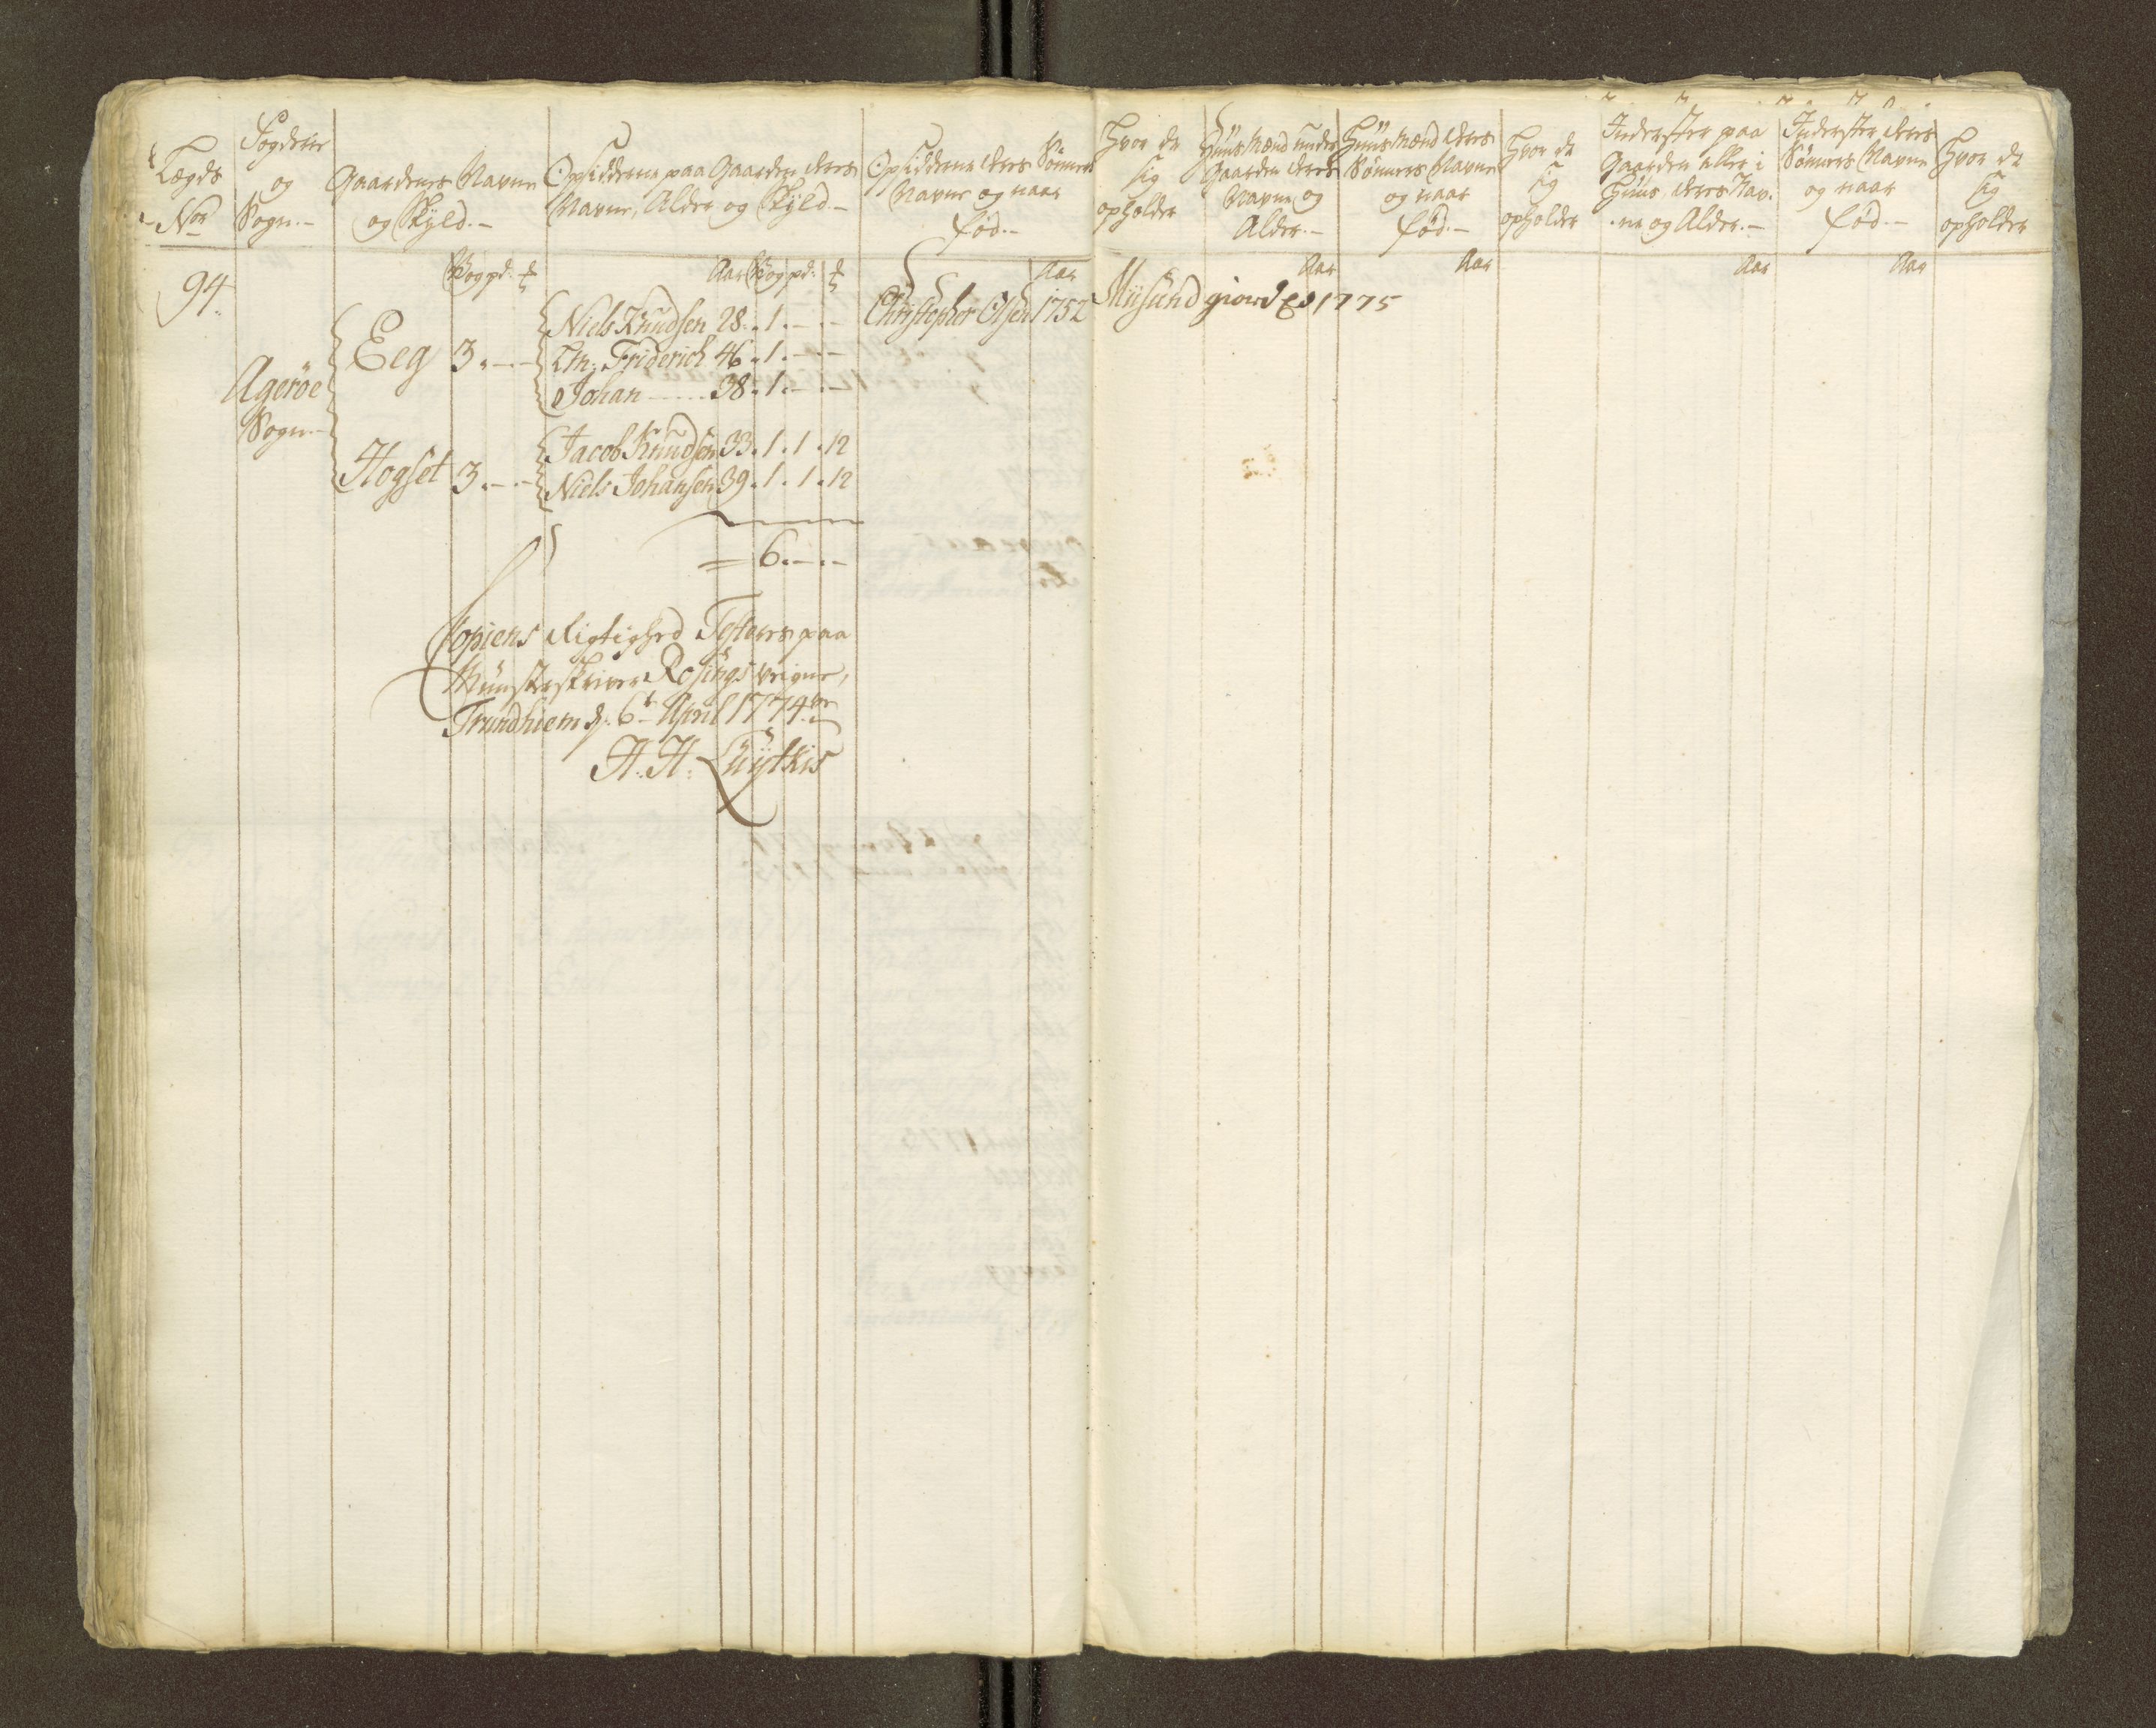 Lægds
No
Fogderie
og
Sogn.-
Gaardenes Navne
og Skyld.-
Opsidderne paa Gaarden deres
Navne, Alder og Skyld.-
Opsidderne deres Sønners
Navne og naar
fød.-
Hvor de
sig
opholder
Huusmænd under
Gaarden deres
Navne og
Alder.-
Huusmænd deres
Sønners Navne
og naar
fød.-
Hvor de
sig
opholder
Inderster paa
Gaarden eller i
Huus deres Nav-
ne og Alder.-
Inderster deres
Sønners Navne
og naar
fød.-
Hvor de
sig
opholder
Wog pd:
Aar Wog pd:
Aar
Aar
Aar
Aar
Aar
94.
Agerøe
Sogn.-
Eeg 3.-.-
Niels Knudsen 28.1.-.-
Christopher Olsen 1752
Misund
1775
Friderich 46.1.-.-
Johan 38.1.-.-
Hogset 3.-.-
Jacob Knudsen 33.1.1.12
Niels Johansen 39.1.1.12
= 6.-.-
Copiens Rigtighed Testeres paa
Mønsterskriver Rosings veigne,
Trundhiem d: 6t April 1774
H. H. Lüytkis